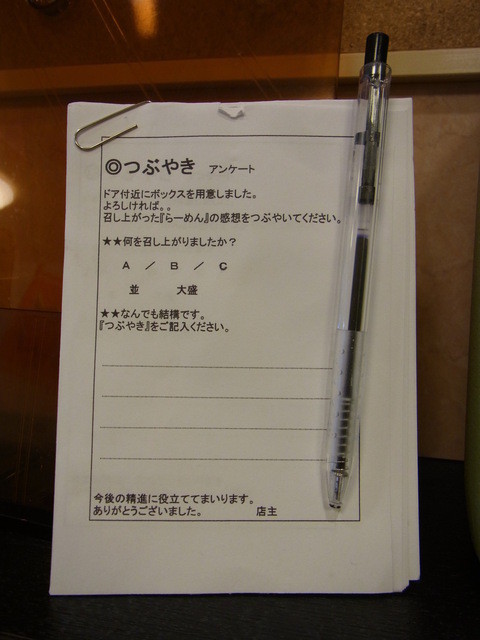 ◎つぶやき アンケート
ドア付近にボックスを用意しました。
よろしければ。。
召し上がった『らーめん』の感想をつぶやいてください。
★★何を召し上がりましたか？
A ／ B ／ C
並 大盛
★★なんでも結構です。
『つぶやき』をご記入ください。
今後の精進に役立ててまいります。
ありがとうございました。 店主